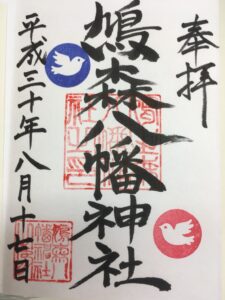 奉拝
鳩森八幡神社
平成三十年八月十七日